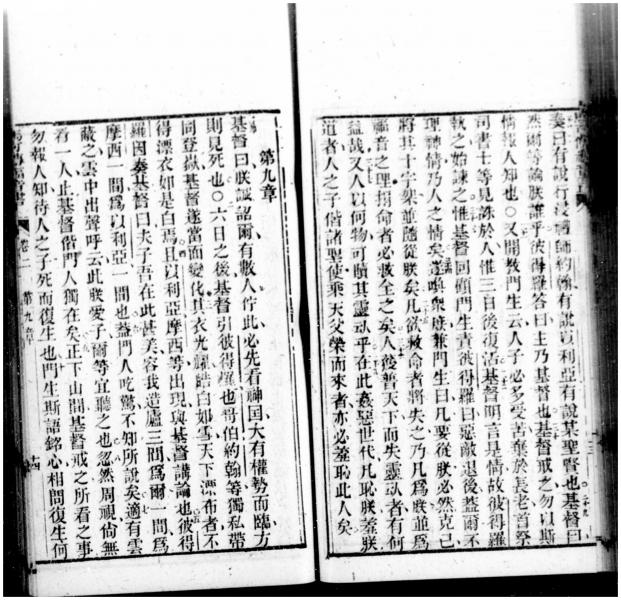 奏曰有說行浸禮師約翰有說以利亞有說某聖賢也基督曰
然爾等論朕誰乎彼得羅答曰主乃基督也基督戒之勿以斯
情報人知也○又開教門生云人子必多受苦棄於長老首祭
司書士等見誅於人惟三日後復活基督明言是情故彼得羅
執之始諫之惟基督回顧門生責彼得羅曰惡敵退後蓋爾不
理神情乃人之情矣遂喚眾庶兼門生曰凡要從朕必然克己
將其十字架並隨從朕矣凡欲救命者將失之乃凡為朕並為
福音之理捐命者必救全之矣人獲普天下而失靈𩲸者有何
益哉又人以何物可贖其靈𩲸乎在此姦惡世代凡恥朕羞朕
道者人之子偕諸聖使乘天父榮而來者亦必羞恥此人矣
第九章
基督曰朕誠詔爾有數人佇此必先看神国大有權勢而臨方
則見死也○六日之後基督引彼得羅也哥伯約翰等獨私帶
同登嶽基督遂當面變化其衣光耀皓白如雪天下漂布者不
得漂衣如是白焉且以利亞摩西等出現與基督講論也彼得
羅因奏基督曰夫子吾在此甚美容我造廬三間為爾一間為
摩西一間為以利亞一間也蓋門人吃驚不知所說矣適有雲
蔽之雲中出聲呼云此朕愛子爾等宜聽之也忽然周視尚無
看一人止基督偕門人獨在矣正下山間基督戒之所看之事
勿報人知待人之子死而復生也門生斯語銘心相問復生何
卷二
第九章
十四